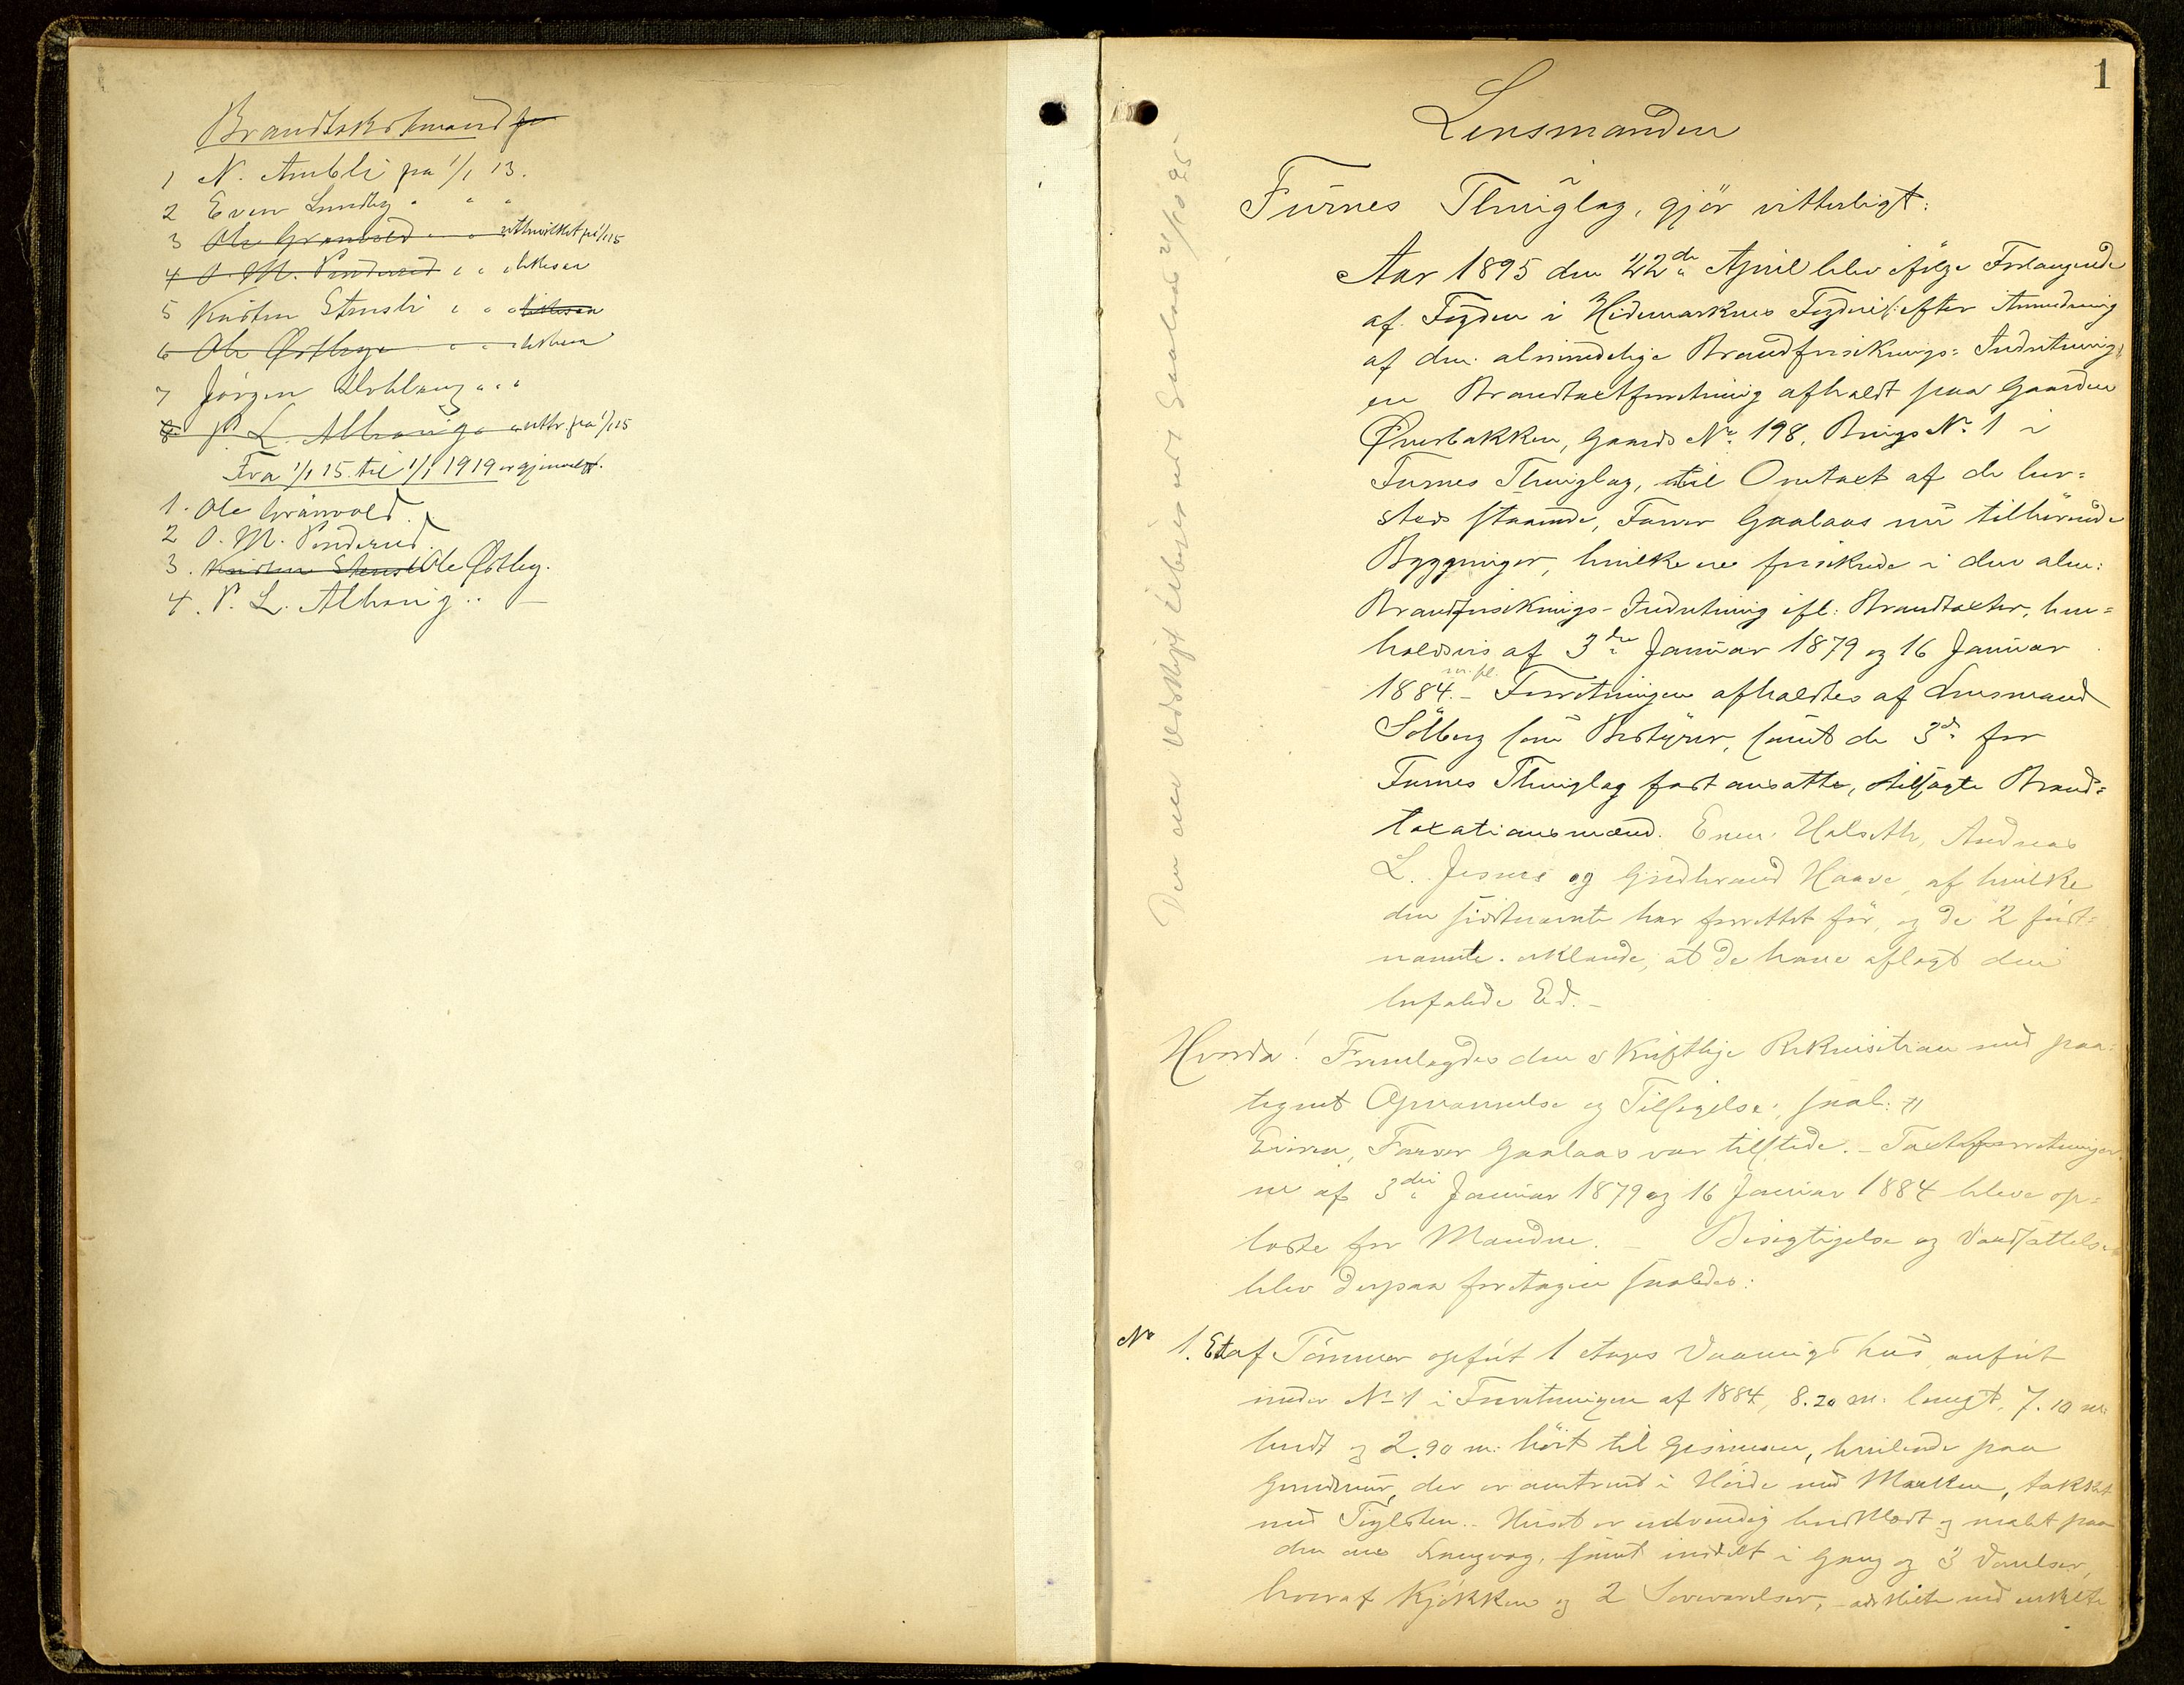 Brandtakstmænd
1 N. Ambli fra 1/1 13.
2 Even Lundby " " "
3 Ole Grønvold " " uttrukket fra 1/1 15
4 O. M. Penderud " " likesaa
5 Kristen Stensli " " likesaa
6 Ole Østbye " " likesaa
7 Jørgen " " "
8 P. L. Alhaug " uttr. fra 1/1 15
Fra 1/1 15 til 1/1 1919 er gjenvalgt.
1. Ole Grønvold.
2 O. M. Penderud.
3. Kristen Stensli Ole Østby.
4. P. L. Alhaug "
1
Lensmanden
i
Furnes Thinglag, gjør vitterligt:
Aar 1895 den 22de April blev ifølge Forlangende
af Fogden i Hedemarkens Fogderi /: efter Anmodning
af den almindelige Brandforsikrings-Indretning :/
en Brandtaxtforretning afholdt paa Gaarden
Øverbakken, Gaards No 198, Brugs No 1 i
Furnes Thinglag, til Omtaxt af de her-
steds staaende, Farver Gaalaas nu tilhørende
Bygninger, hvilke ere forsikrede i den alm:
Brandforsikrings-Indretning ifl. Brandtaxter, hen-
holdsvis af 3die Januar 1879 og 16 Januar
1884. m. fl. – Forretningen afholdtes af Lensmand
Sølberg som Bestyrer, samt de 3de for
Furnes Thinglag fast ansatte, tilsagte Brand-
taxationsmænd. Even Halseth, Andreas
L. Jesnes og Gudbrand Haave, af hvilke
den sidstnævnte har forrettet før, og de 2 først-
nævnte erklærede, at de have aflagt den
befalede Ed. –
Hvorda! Fremlagdes den skriftlige Rekvisition med paa-
tegnet Opnævnelse og Tilsigelse, saal.
Eieren, Farver Gaalaas var tilstede. – Taxtforretninger-
ne af 3die Januar 1879 og 16 Januar 1884 bleve op-
læste for Mændene. – Besigtigelse og Værdsættelse
blev derpaa foretagen saaledes:
No 1. Et af Tømmer opført 1 Etages Vaaningshus, anført
under No 1 i Forretningen af 1884, 8.20 m. langt, 7.10 m.
bredt og 2.90 m. høit til Gesimsen, hvilende paa
Grundmur, der er omtrent i Høide med Marken, taktækt
med Teglsten. – Huset er udvendig bordklædt og malet paa
den ene Langvæg, samt inddelt i Gang og 3 Værelser,
hvoraf Kjøkken og 2 Soveværelser, adskilte ved enkelte